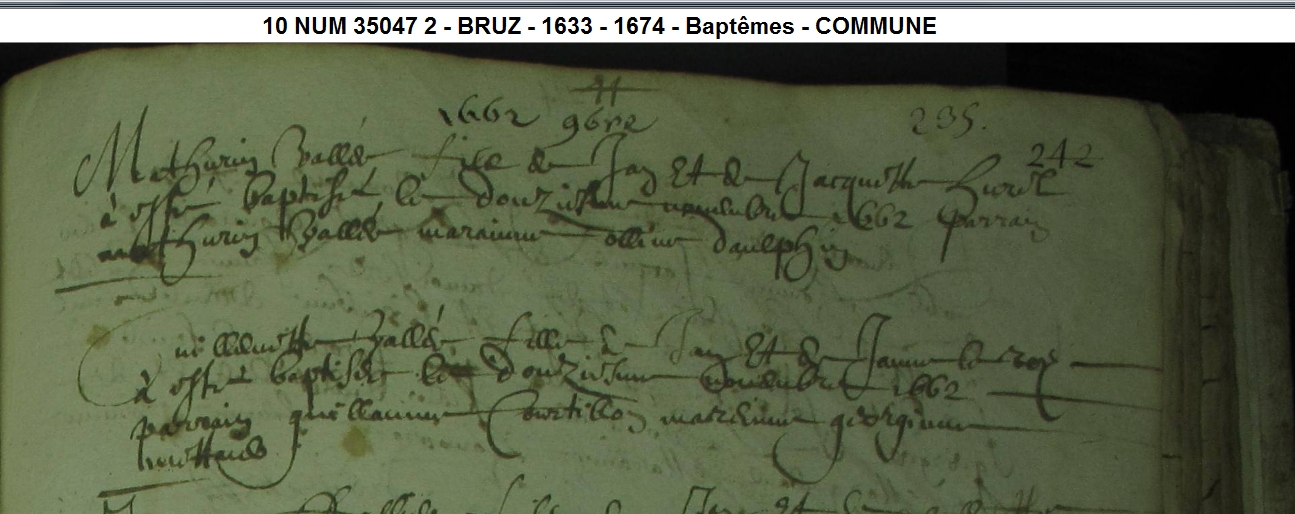 10 NUM 35047 2 - BRUZ - 1633 - 1674 - Baptêmes - COMMUNE
1662 9bre 235.
242
Mathurin Vallée filz de Jan Et de Jacquette hurel
à esté baptisé le douziesme novembre 1662 parrain
mathurin Vallée maraine ollive daulphin
Guillemette Vallée fille de Jan Et de Janne le roy
à esté baptisée le douziesme novembre 1662
parrain guillaume Courtillon mareinne georginne